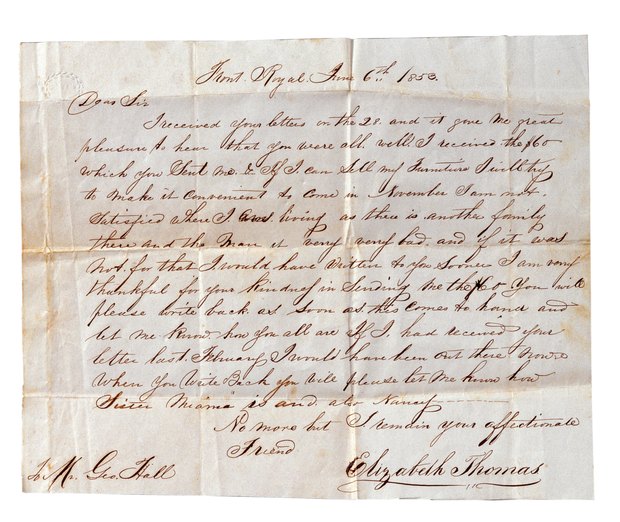 Front Royal June 6th 1853.
Dear Sir
I received your letters on the 28. and it give me great
pleasure to hear that you were all well. I received the $60
which you Sent me. & If I can Sell my Furniture I will try
to make it convenient to come in November I am not
Satisfied where I am living as there is another family
there and the man is very very bad. and if it was
not for that I would have written to you sooner I am very
thankful for your kindness in Sending me the $60 You will
please write back as soon as this comes to hand and
let me know how you all are If I had received your
letter last February I would have been out there Now.
When You Write Back you will please let me know how
Sister is and also Nancy
No more but I remain your affectionate
Friend
Elizabeth Thomas
To Mr. Geo. Hall